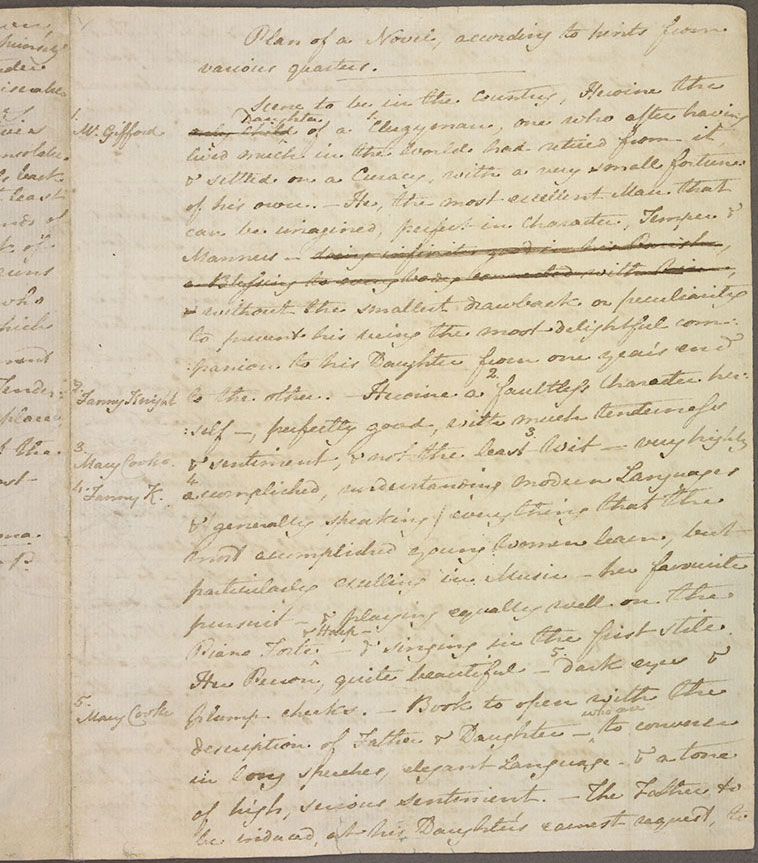 Plan of a Novel, according to hints from
various quarters.
Scene to be in the Country, Heroine the
Daughter
1. Mr. Gifford
only Child of a 1 Clergyman, one who after having
lived much in the World had retired from it,
& settled on a Curacy, with a very small fortune
of his own. - He, the most excellent Man that
can be imagined, perfect in Character, Temper &
Manners - doing infinite good in his Parish,
a Blessing to every body connected with him,
& without the smallest drawback or peculiarity
to prevent his being the most delightful com:
:panion to his Daughter from one year's end
2. Fanny Knight
to the other. - Heroine a 2 faultless Character her:
:self -, perfectly good, with much tenderness
3. Mary Cooke.
& sentiment, & not the least 3 Wit - very highly
4. Fanny K.
4 accomplished, understanding modern Languages
& (generally speaking) everything that the
most accomplished young Women learn, but
particularly excelling in Music - her favourite
pursuit - & playing equally well on the
& Harp -
Piano Forte - & singing in the first stile.
Her Person, quite beautiful - 5. dark eyes &
5. Mary Cooke
plump cheeks. - Book to open with the
description of Father & Daughter - who are to converse
in long speeches, elegant Language - & a tone
of high, serious sentiment. - The Father to
be induced, at his Daughter's earnest request, to